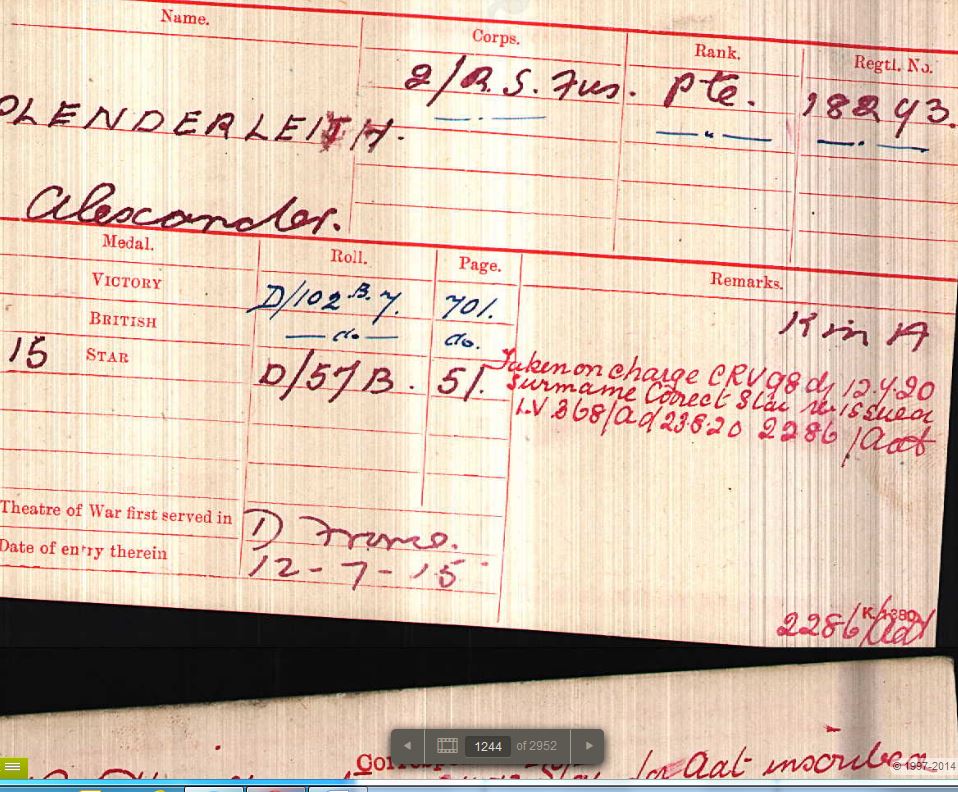 Name. Corps. Rank. Regtl. No.
2/R.S. Fus. Pte. 18243.
—.— —"— —.—
OLENDERLEITH.
Alexander.
Medal. Roll. Page. Remarks.
VICTORY D/102 B. 7. 701.
K in A
BRITISH — do — do.
15 STAR D/57B. 51.
Taken on charge CRV 98 d/ 12.4.20
Surname Correct Star re issued
I.V 368/Ad 23.8.20 2286/Aat
Theatre of War first served in D France.
Date of entry therein 12-7-15
K. 1380.
2286/Aat
Aat inscribed
1244 of 2952
© 1997-2014